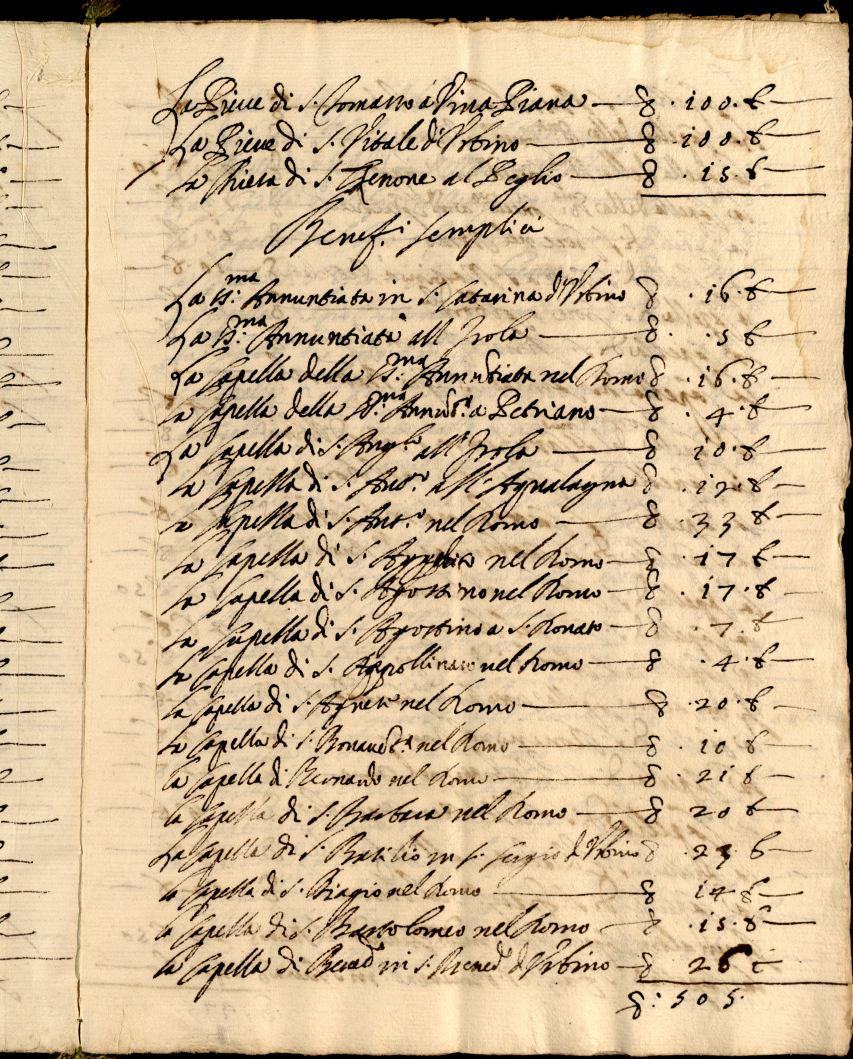 La Pieve di S. Tomasso à Vina Piana — 100.
La Pieve di S. Vitale d'Urbino — 100.
La Chiesa di S. Zenone al Peglio — 15
Benef.i semplici
La SS.ma Annuntiata in S. Catarina d'Urbino 16.
La SS.ma Annuntiata all'Isola — 5
La Capella della SS.ma Annuntiata nel Domo 16.
La Capella della SS.ma Annu.ta a Petriano — 4.
La Capella di S. Ang.lo all'Isola — 10.
La Capella di S. Ant.o all'Aqualagna 12.
La Capella di S. Ant.o nel Domo — 33
La Capella di S. nel Domo — 17
La Capella di S. Agostino nel Domo — 17.
La Capella di S. Agostino a S. Donato — 7.
La Capella di S. Appollinare nel Domo — 4.
La Capella di S. Agnese nel Domo — 20.
La Capella di S. Bonavent.a nel Domo — 10
La Capella di Bernardo nel Domo — 21
La Capella di S. Barbara nel Domo — 20
La Capella di S. Basilio in S. Sergio d'Urbino 23.
La Capella di S. Biagio nel Domo — 14
La Capella di S. Bartolomeo nel Domo — 15.
La Capella di Bened.o in S. Bened.o d'Urbino — 26
: 505.